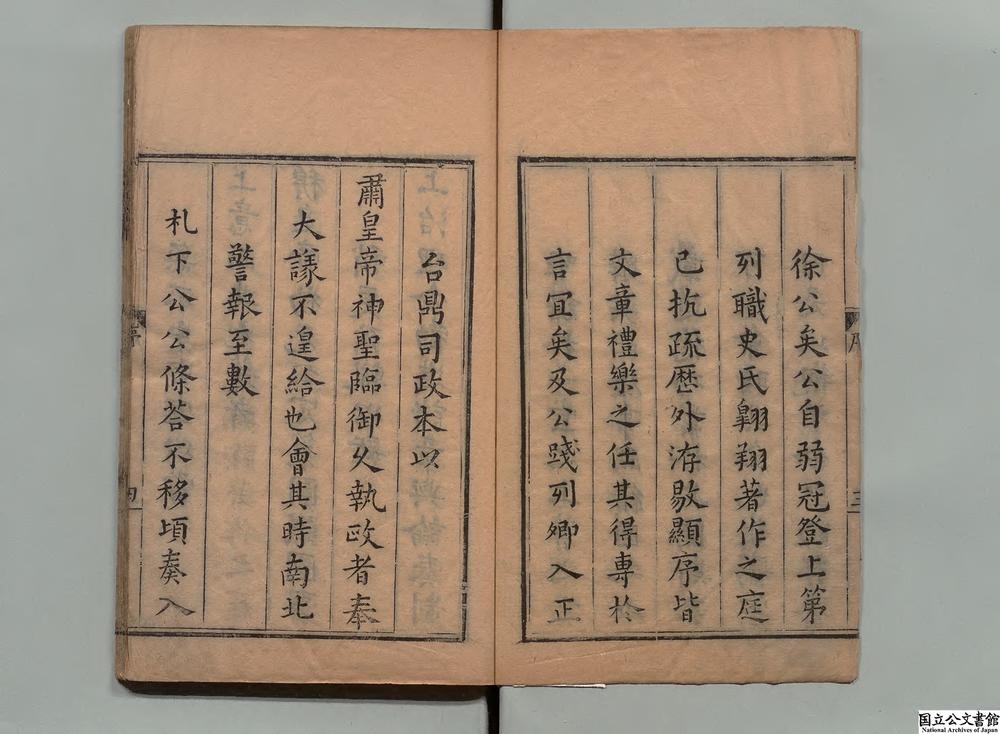 徐公矣公自弱冠登上第
列職史氏翺翔著作之庭
已抗疏歷外洊敭顯序皆
文章禮樂之任其得專於
言冝矣及公踐列卿入正
序
三
台鼎司政本以
肅皇帝神聖臨御久執政者奉
大謀不遑給也會其時南北
警報至數
札下公公條荅不移頃奏入
序
四
国立公文書館
National Archives of Japan